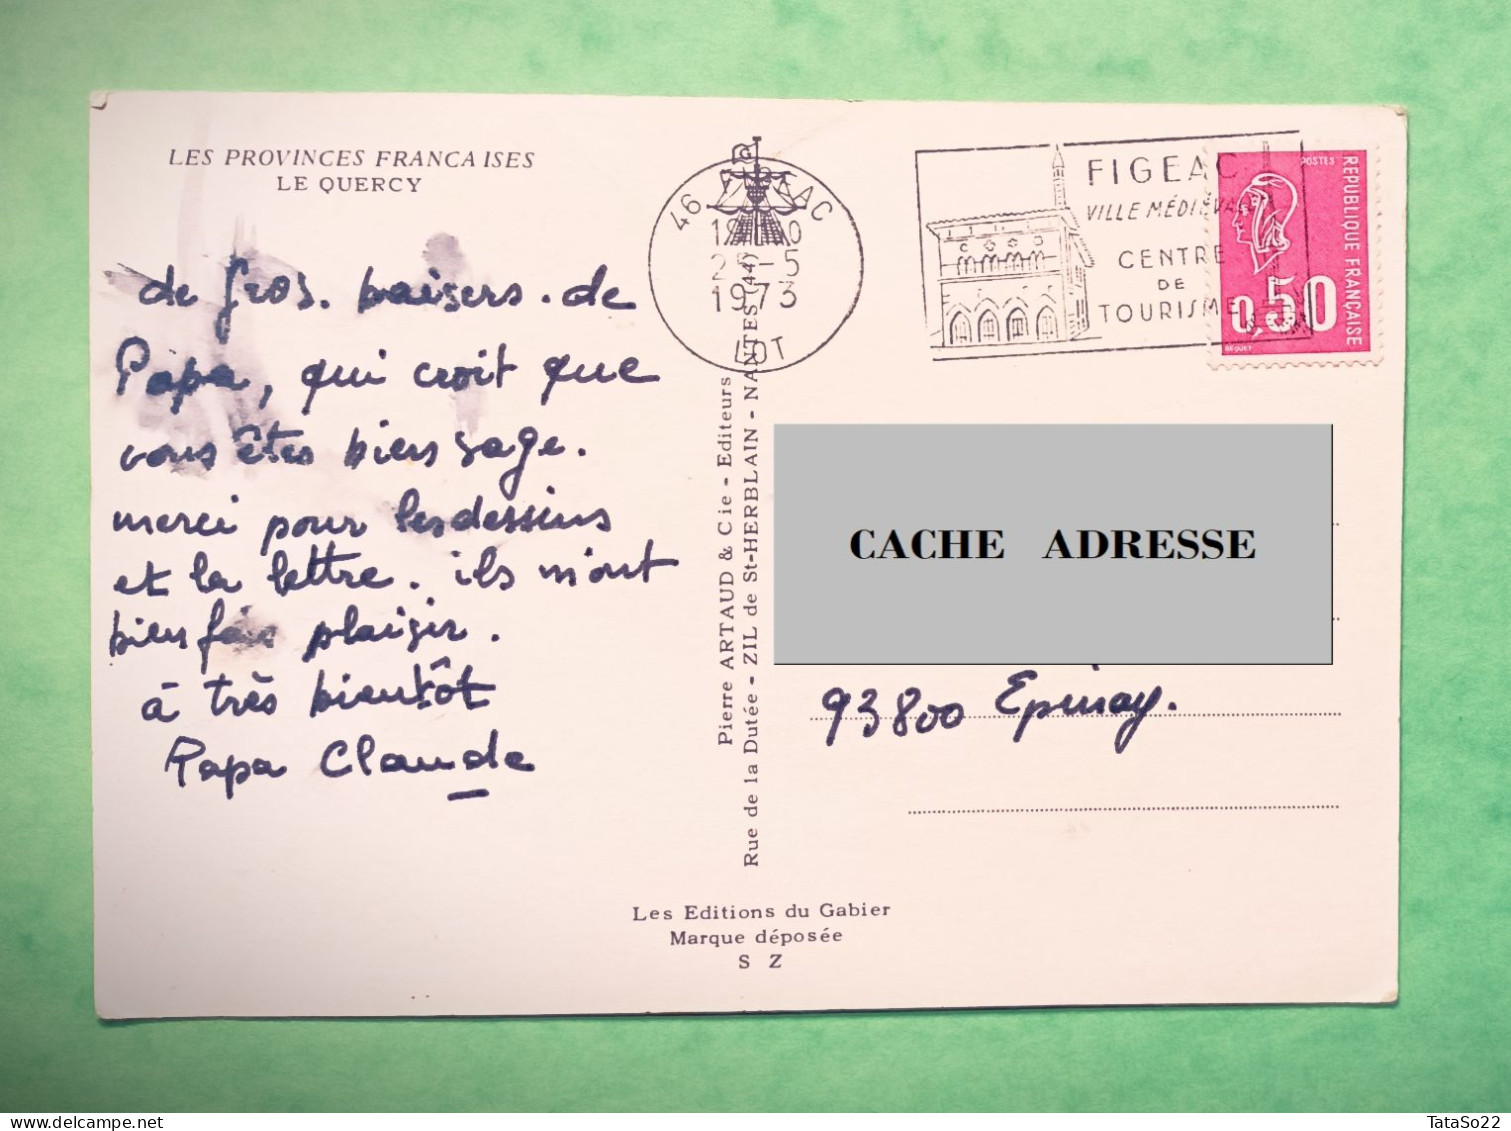 LES PROVINCES FRANCAISES
LE QUERCY
de gros. baisers. de
Papa, qui croit que
vous êtes bien sage.
merci pour les dessins
et la lettre. ils m'ont
bien fais plaisir.
à très bientôt
Papa Claude
Pierre ARTAUD & Cie - Editeurs
Rue de la Dutée - ZIL de St-HERBLAIN - NANTES (44)
Les Editions du Gabier
Marque déposée
S Z
46 FIGEAC
-5
1973
LOT
FIGEAC
VILLE MÉDIÉVALE
CENTRE
DE
TOURISME
POSTES
REPUBLIQUE FRANÇAISE
0,50
BEQUET
CACHE ADRESSE
93800 Epinay.
TataSo22